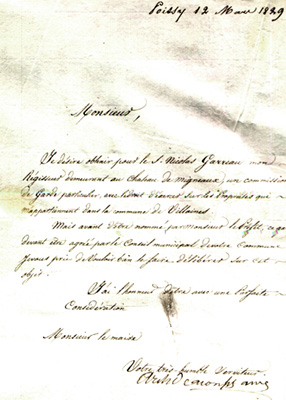 Poissy 12 Mars 1829
Monsieur,
Je désire obtenir pour le S. Nicolas Garreau mon
Régisseur demeurant au Chateau de Migneaux, une commission
de Garde particulier, avec l'effet d'exercer sur les Propriétés qui
m'appartiennent dans la commune de Villaines
Mais avant d'être nommé par Monsieur le Préfet, ce garde
devant être agréé par le Conseil municipal de votre Commune
je vous prie de vouloir bien le faire délibérer sur cet
objet.
J'ai l'honneur d'être avec une Parfaite
Considération
Monsieur le maire
Votre très humble Serviteur